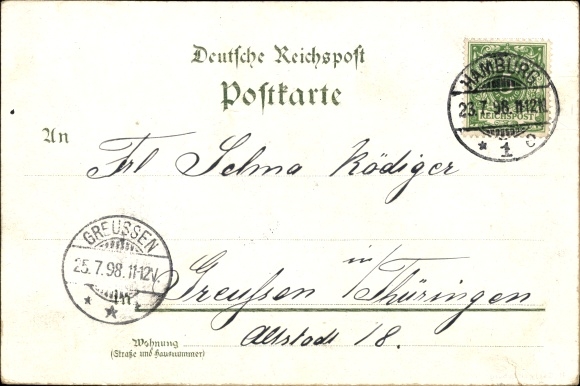 Deutsche Reichspost
Postkarte
HAMBURG
23.7.98.11-12V.
* 1 c
REICHSPOST
An
Frl Selma Rödiger
GREUSSEN
25.7.98.11-12V.
in
Greußen / Thüringen
Altstadt 18.
Wohnung
(Straße und Hausnummer)